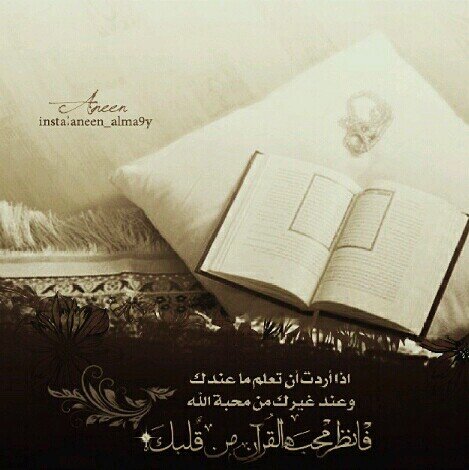 Aneen
insta:aneen_alma9y
اذا أردت أن تعلم ما عندك
وعند غيرك من محبة الله
فانظر محبة القرآن من قلبك